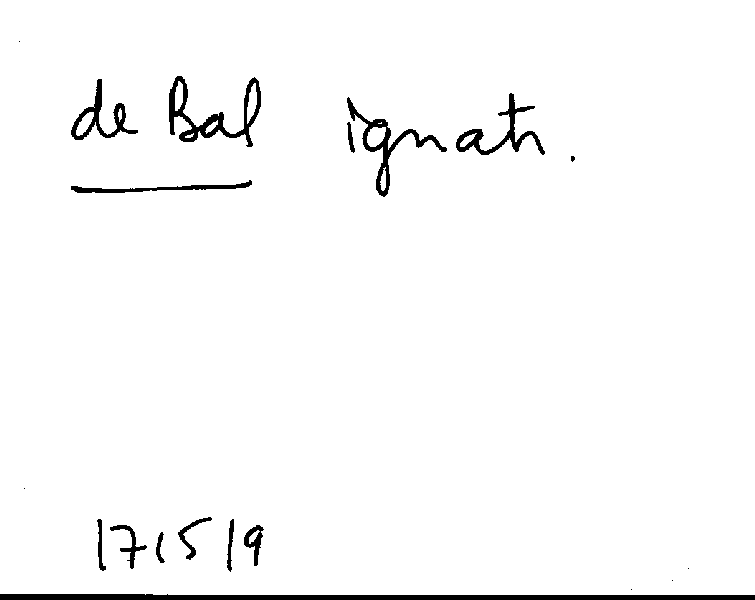 de Bal ignatr.
171519